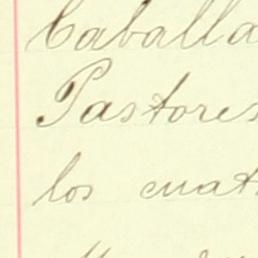 Caballa
Pastores
los cuat